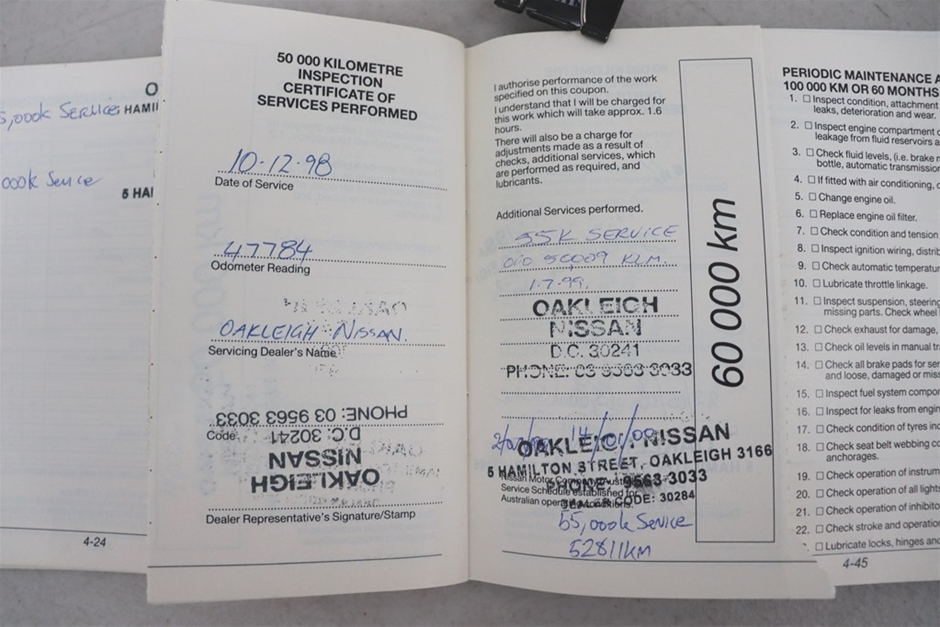 5,000k Service
HAMI
000k Service
5 HAI
4-24
50 000 KILOMETRE
INSPECTION
CERTIFICATE OF
SERVICES PERFORMED
10·12·98
Date of Service
47784
Odometer Reading
OAKLEIGH NISSAN.
Servicing Dealer's Name
PHONE: 03 9563 3033
Code
D.C. 30241
NISSAN
OAKLEIGH
Dealer Representative's Signature/Stamp
I authorise performance of the work
specified on this coupon.
I understand that I will be charged for
this work which will take approx. 1.6
hours.
There will also be a charge for
adjustments made as a result of
checks, additional services, which
are performed as required, and
lubricants.
Additional Services performed.
55K SERVICE
O/O 50009 KLM.
1.7.99.
OAKLEIGH
NISSAN
D.C. 30241
PHONE: 03 9563 3033
14/01/00
OAKLEIGH NISSAN
5 HAMILTON STREET, OAKLEIGH 3166
PHONE: 9563-3033
Service Schedule established for
DEALER CODE: 30284
55,000k Service
52811km
60 000 km
PERIODIC MAINTENANCE A
100 000 KM OR 60 MONTHS
1. Inspect condition, attachment
leaks, deterioration and wear.
2. Inspect engine compartment
leakage from fluid reservoirs a
3. Check fluid levels, (i.e. brake
bottle, automatic transmission
4. If fitted with air conditioning,
5. Change engine oil.
6. Replace engine oil filter.
7. Check condition and tension
8. Inspect ignition wiring, distrib
9. Check automatic temperatur
10. Lubricate throttle linkage.
11. Inspect suspension, steering
missing parts. Check wheel
12. Check exhaust for damage,
13. Check oil levels in manual tr
14. Check all brake pads for
and loose, damaged or mis
15. Inspect fuel system compo
16. Inspect for leaks from engin
17. Check condition of tyres
18. Check seat belt webbing
anchorages.
19. Check operation of instrum
20. Check operation of all lights
21. Check operation of inhibito
22. Check stroke and operation
Lubricate locks, hinges and
4-45